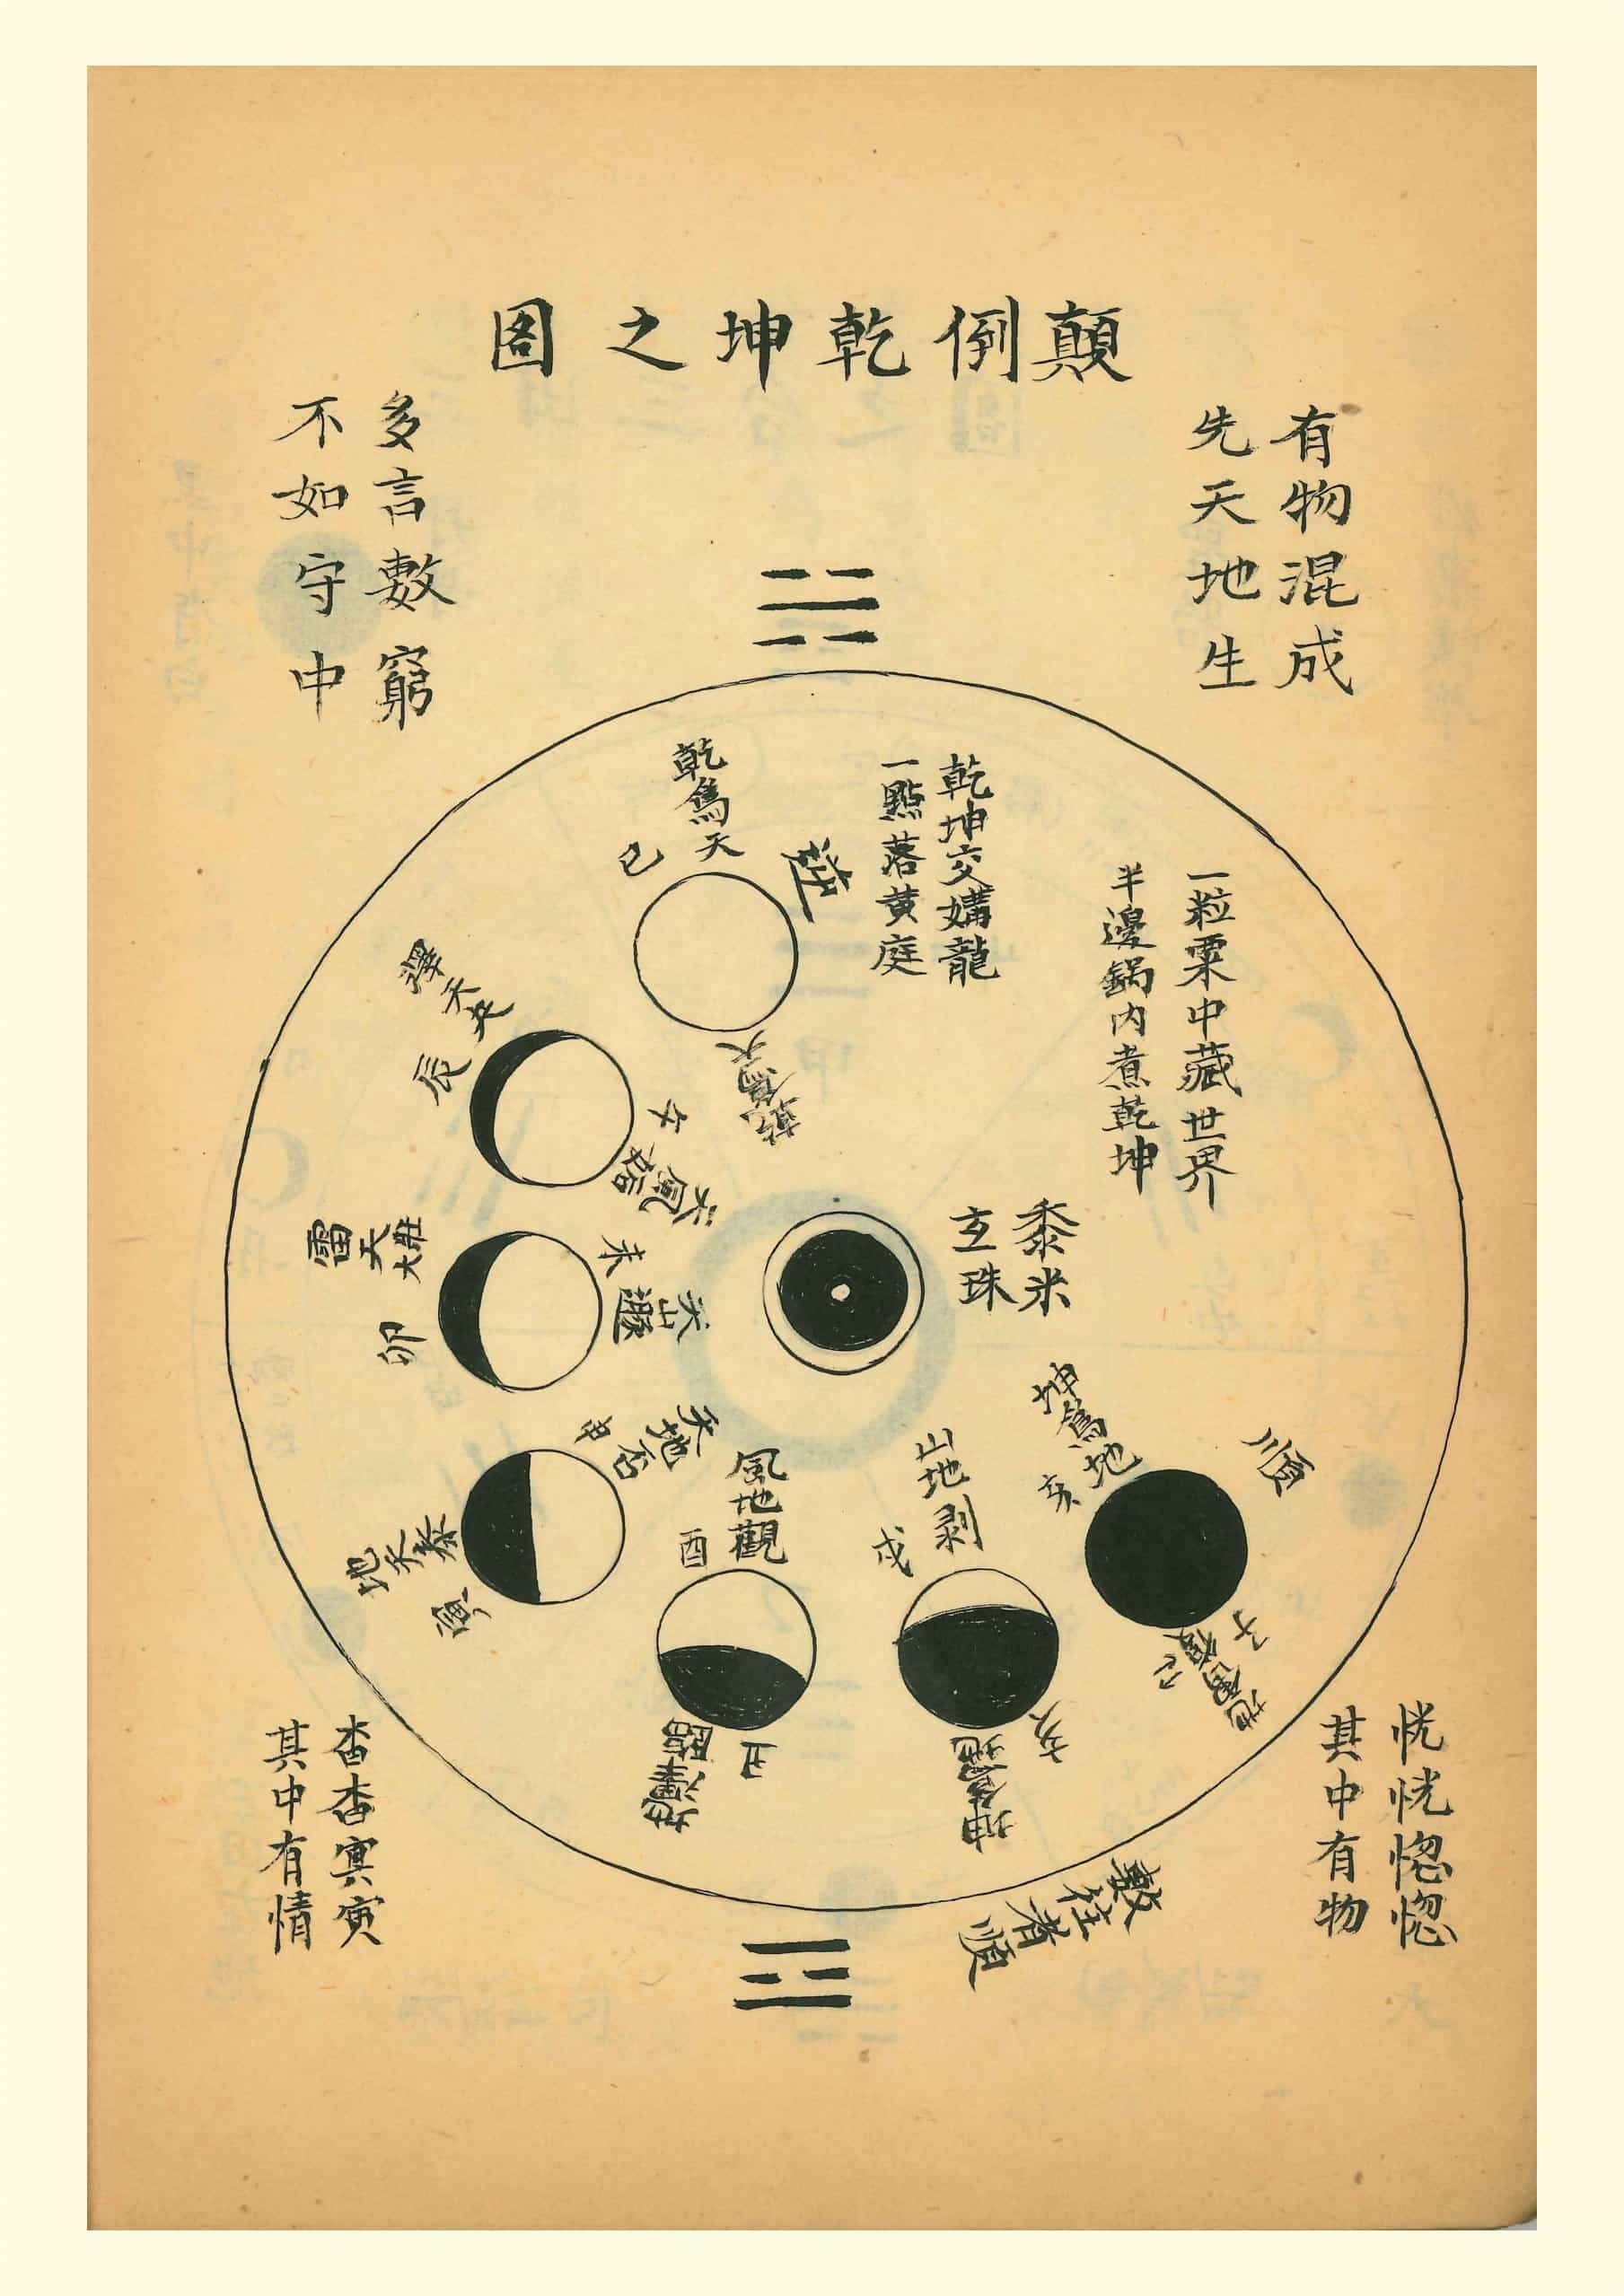 顛倒乾坤之圖
有物混成
先天地生
多言數窮
不如守中
乾坤交媾龍
一點落黄庭
一粒粟中藏世界
半邊鍋內煮乾坤
黍米
玄珠
逆
乾為天
巳
乾為天
澤天夬
辰
午
天風姤
雷天大壯
卯
未
天山遯
地天泰
寅
申
天地否
風地觀
酉
丑
地澤臨
山地剥
戌
亥
坤為地
坤為地
亥
順
子
地雷復
數往者順
恍恍惚惚
其中有物
杳杳冥冥
其中有情